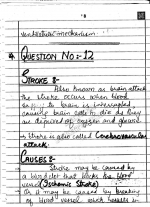 ventilation mechanism.
QUESTION No:- 12
STROKE :-
Also known as brain attack
the stroke occurs when blood
supply to brain is interrupted
causing brain cells to die as they
are deprived of oxygen and glucose.
→ Stroke is also called Cerebrovascular
attack.
CAUSES :-
Stroke may be caused by
a blood clot that blocks the blood
vessel (Ischemic Stroke)
Or it may be caused by breaking
of blood vessel which results in